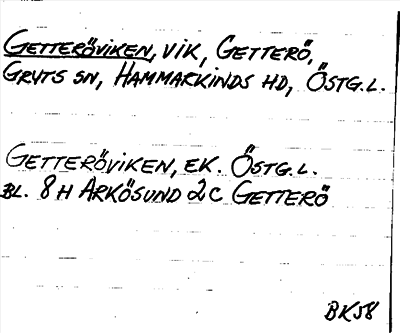 GETTERÖVIKEN, VIK, GETTERÖ,
GRYTS SN, HAMMARKINDS HD, ÖSTG. L.
GETTERÖVIKEN, EK. ÖSTG. L.
BL. 8 H ARKÖSUND 2 C GETTERÖ
BK58